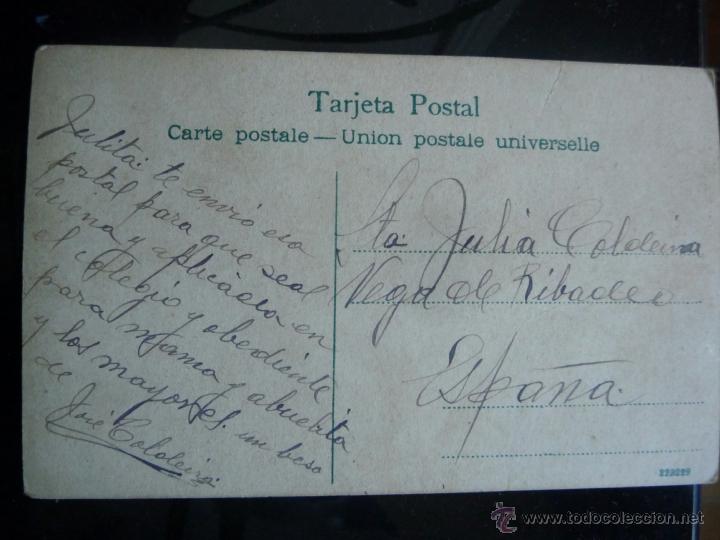 Tarjeta Postal
Carte postale — Union postale universelle
Julita: te envió esa
postal para que seas
buena y aplicada en
el colegio y obediente
para mama y abuelita
y los mayores. un beso
de
José Coldeira
Sta. Julia Coldeira
Vega de Ribadeo
España.
229229
www.todocoleccion.net